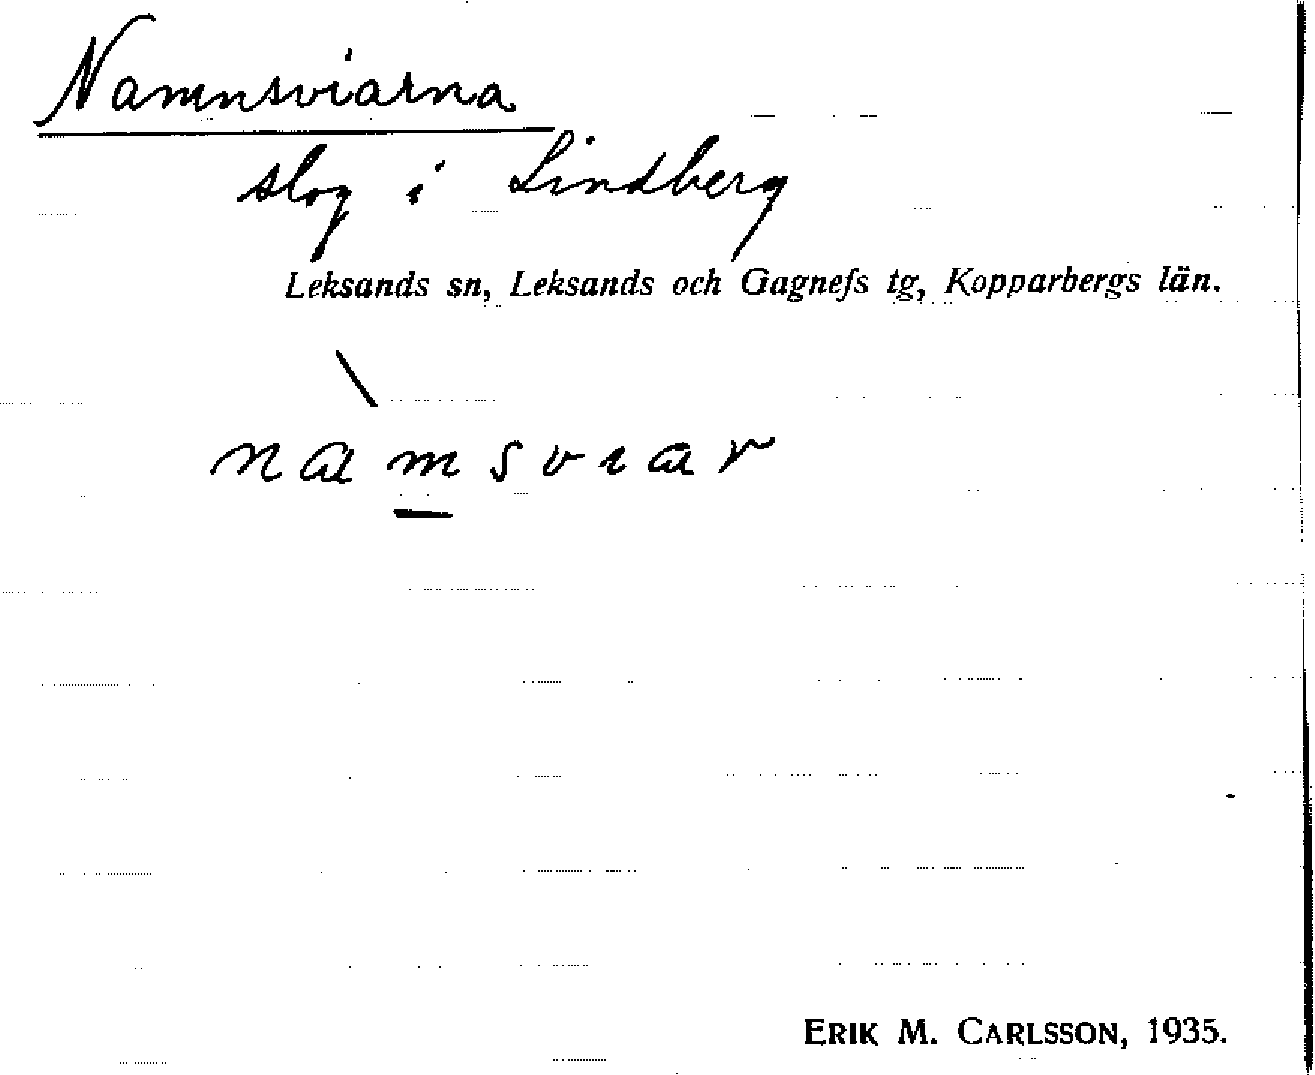 Namnsviarna
slog i Lindberg
Leksands sn, Leksands och Gagnefs tg, Kopparbergs län.
namsviar
ERIK M. CARLSSON, 1935.